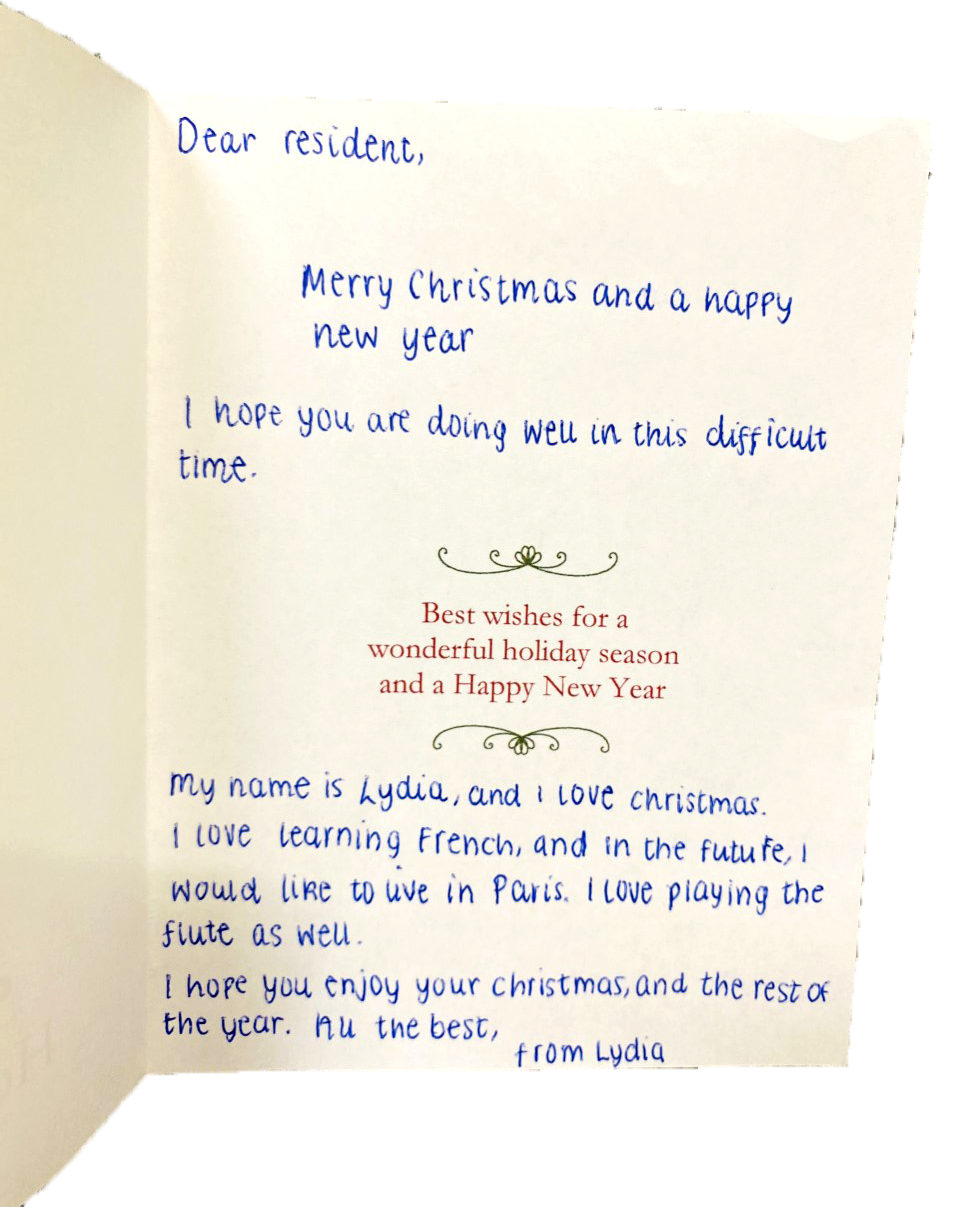 Dear resident,
Merry Christmas and a happy
new year
I hope you are doing well in this difficult
time.
Best wishes for a
wonderful holiday season
and a Happy New Year
My name is Lydia, and I love christmas.
I love learning French, and in the future, I
would like to live in Paris. I love playing the
flute as well.
I hope you enjoy your christmas, and the rest of
the year. All the best,
from Lydia